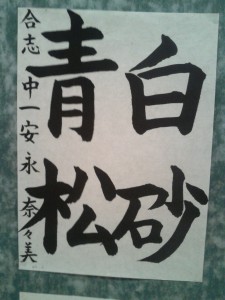 白砂
青松
合志中一安永奈々美